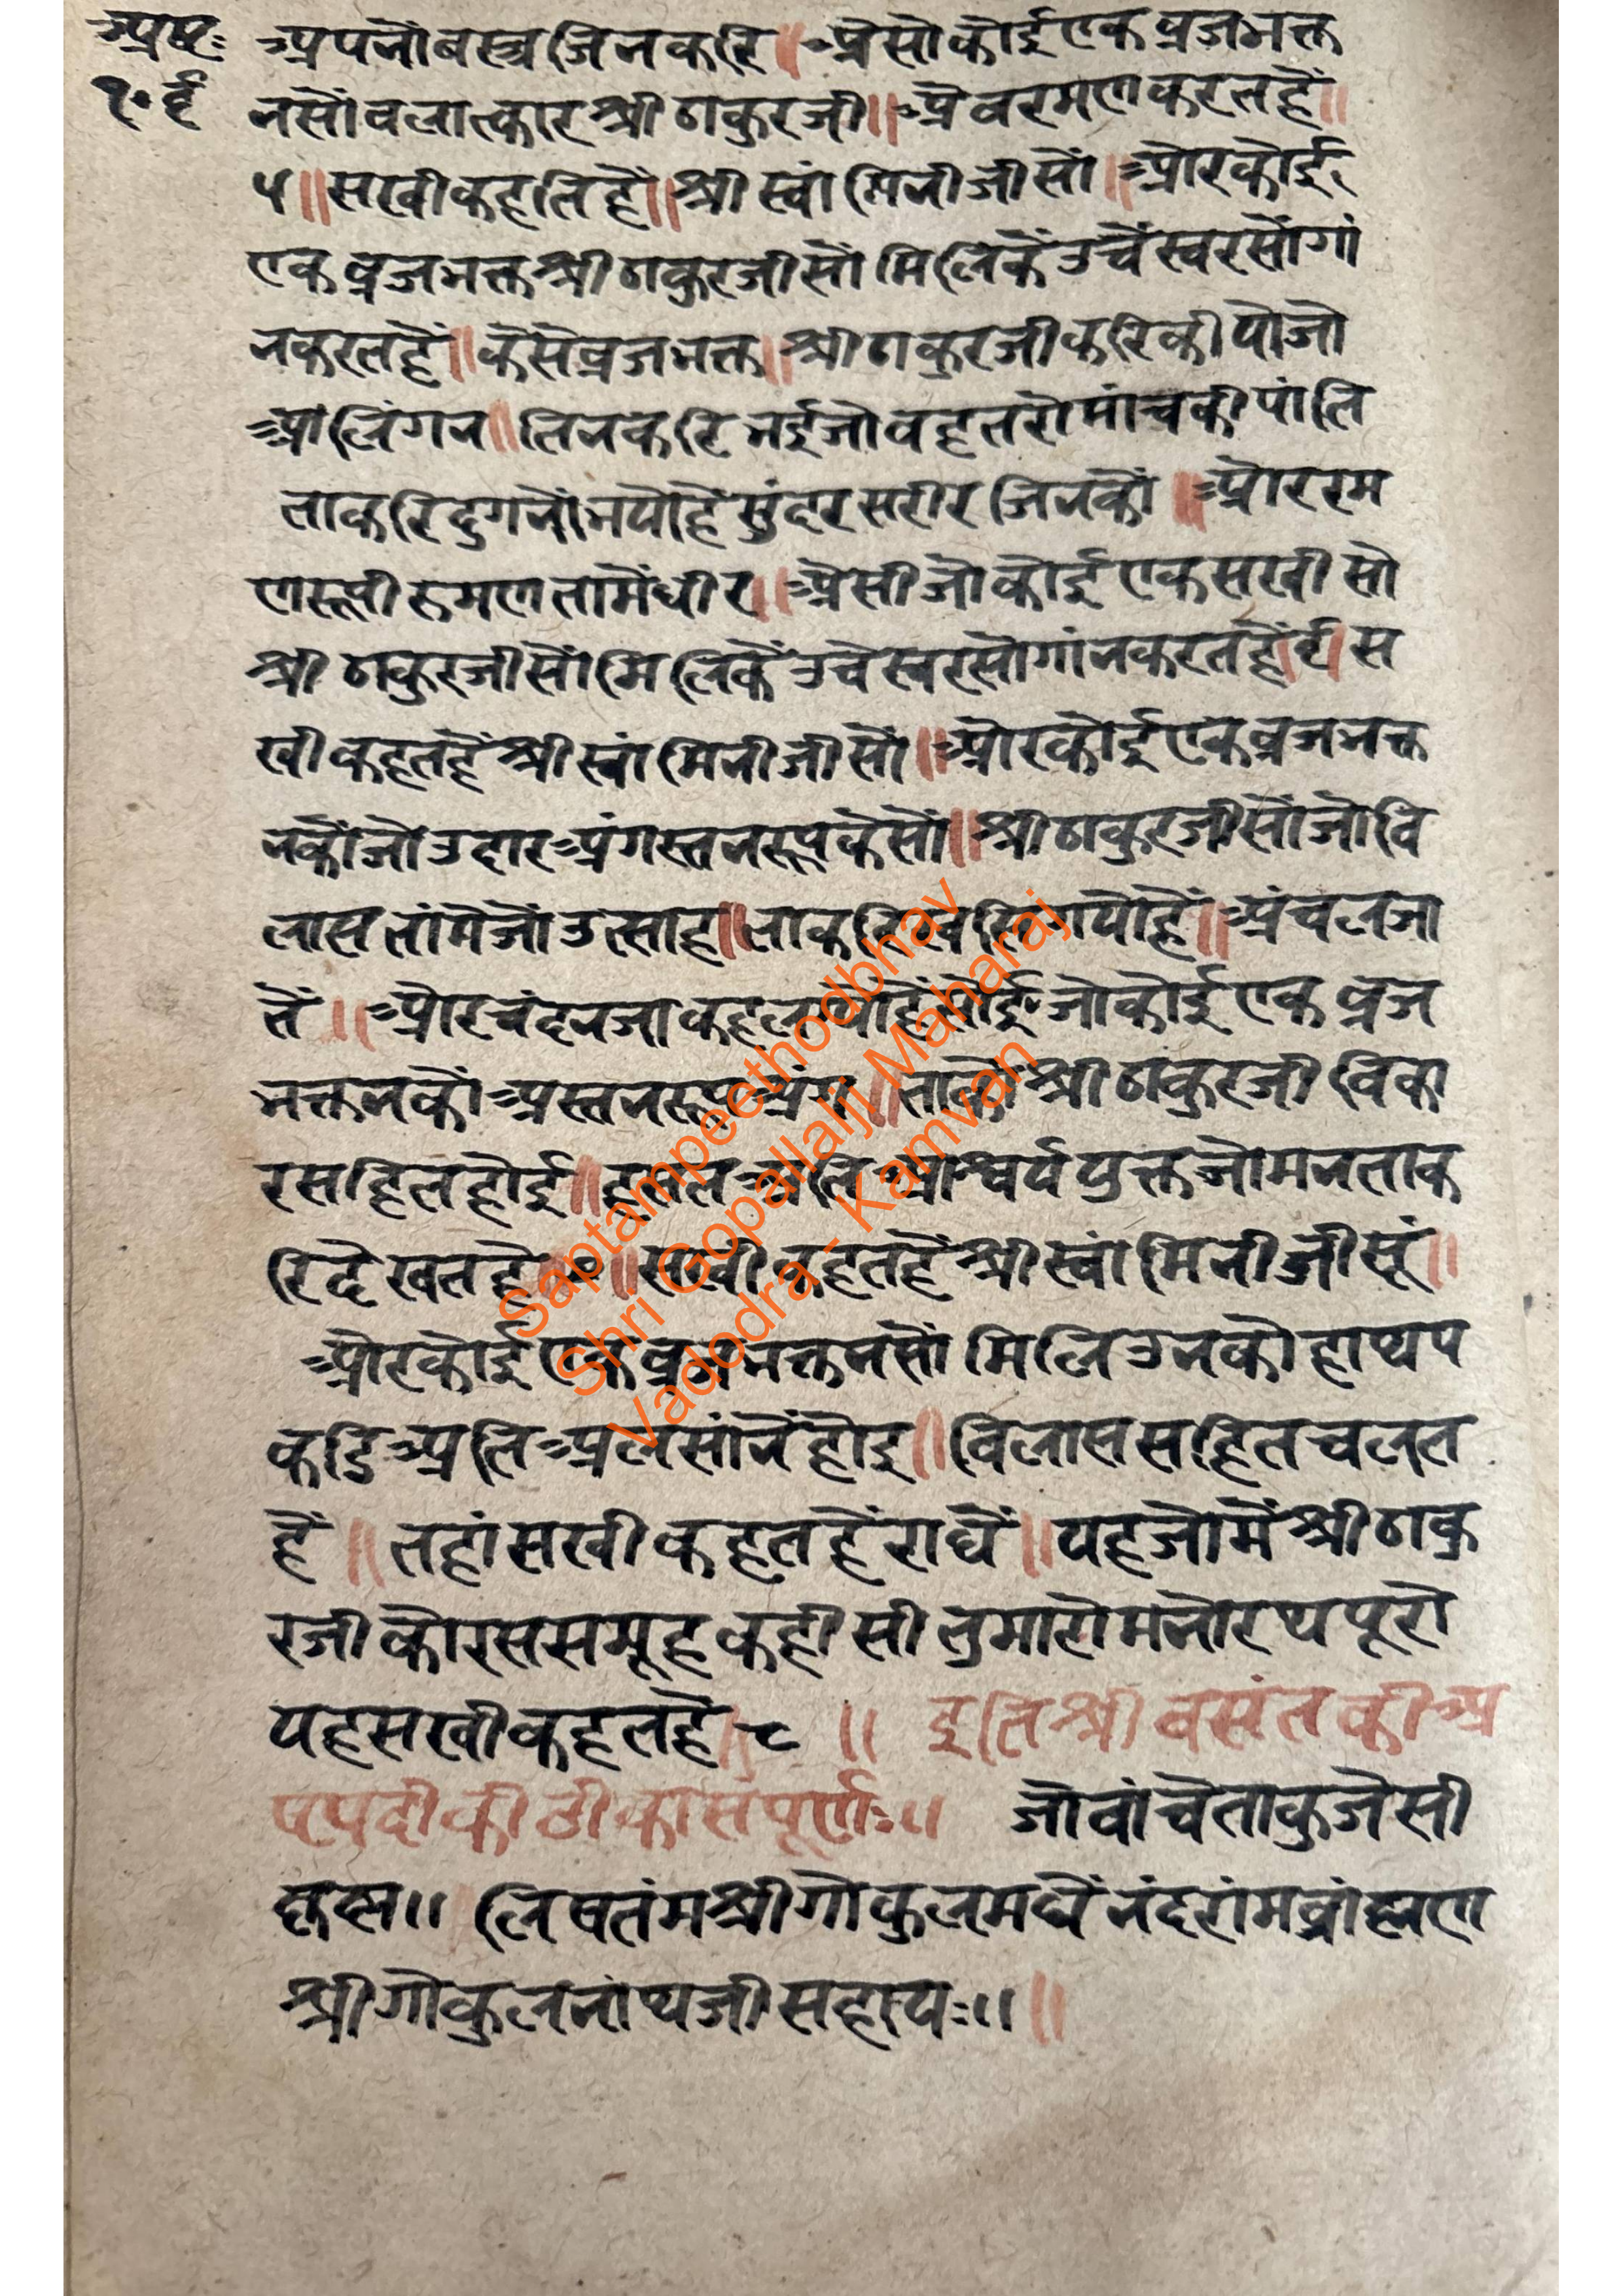 अष्ट:
१०६
अपनौ बस्त्र जिनकरि॥ अैसो कोई एक व्रजभक्त
नसौं वलात्कार श्री ठाकुरजी॥ अैव रमण करत हैं॥
५॥ सखी कहति हैं॥ श्री स्वांमिनीजी सौं॥ और कोई
एक व्रजभक्त श्री ठाकुरजी सौं मिलिकैं उचैं स्वर सौं गां
न करत हैं॥ कैसे व्रजभक्त॥ श्री ठाकुरजी करि कीयो जो
आलिंगन॥ तिन करि भई जो वहत रोमांच की पांति
ता करि दुगनौं भयो है सुंदर सरीर जिनकौ॥ और रम
णरूपी रुमण तामैं धीर॥ अैसी जो कोई एक सखी सो
श्री ठाकुरजी सौं मिलिकैं उचै स्वर सो गांन करत हैं॥६॥ स
खी कहत हैं श्री स्वांमिनीजी सौं॥ और कोई एक व्रजभक्त
नकौं जो उदार अंग स्तनरूप कैसौं॥ श्री ठाकुरजी सौं जो वि
लास तांमै जौं उत्साह॥ ताकरि खसि गयो हैं॥ अंचल जा
तैं॥ और चंदन जा कहत भयो है सोई जो कोई एक व्रज
भक्तनकौं अस्तनरूप अंग॥ ताकौं श्री ठाकुरजी विका
र सहित होई॥ हसत अति आश्चर्य युक्त जो मन ताक
रि देखत है॥७॥ सखी कहत हैं श्री स्वांमिनीजी सूं॥
और कोई एक व्रजभक्तनसौं मिलि उनकौ हाथ प
कडि अति अलसांनैं होइ॥ विलास सहित चलत
हैं॥ तहां सखी कहत हैं राधैं॥ यह जो मैं श्री ठाकु
रजी कौ रससमूह कही सी तुमारो मनोरथ पूरो
यह सखी कहत है॥८॥ इति श्री वसंत की अ
षपदी की टीका संपूर्ण:॥ जो वांचै ताकु जैसी
कृष्ण॥ लिषतंम श्री गोकुल मधैं नंदरांम व्रांह्मण
श्री गोकुलनांथजी सहाय:॥॥
Saptampeethodbhav
Shri Gopallalji Maharaj
Vadodra - Kamvan